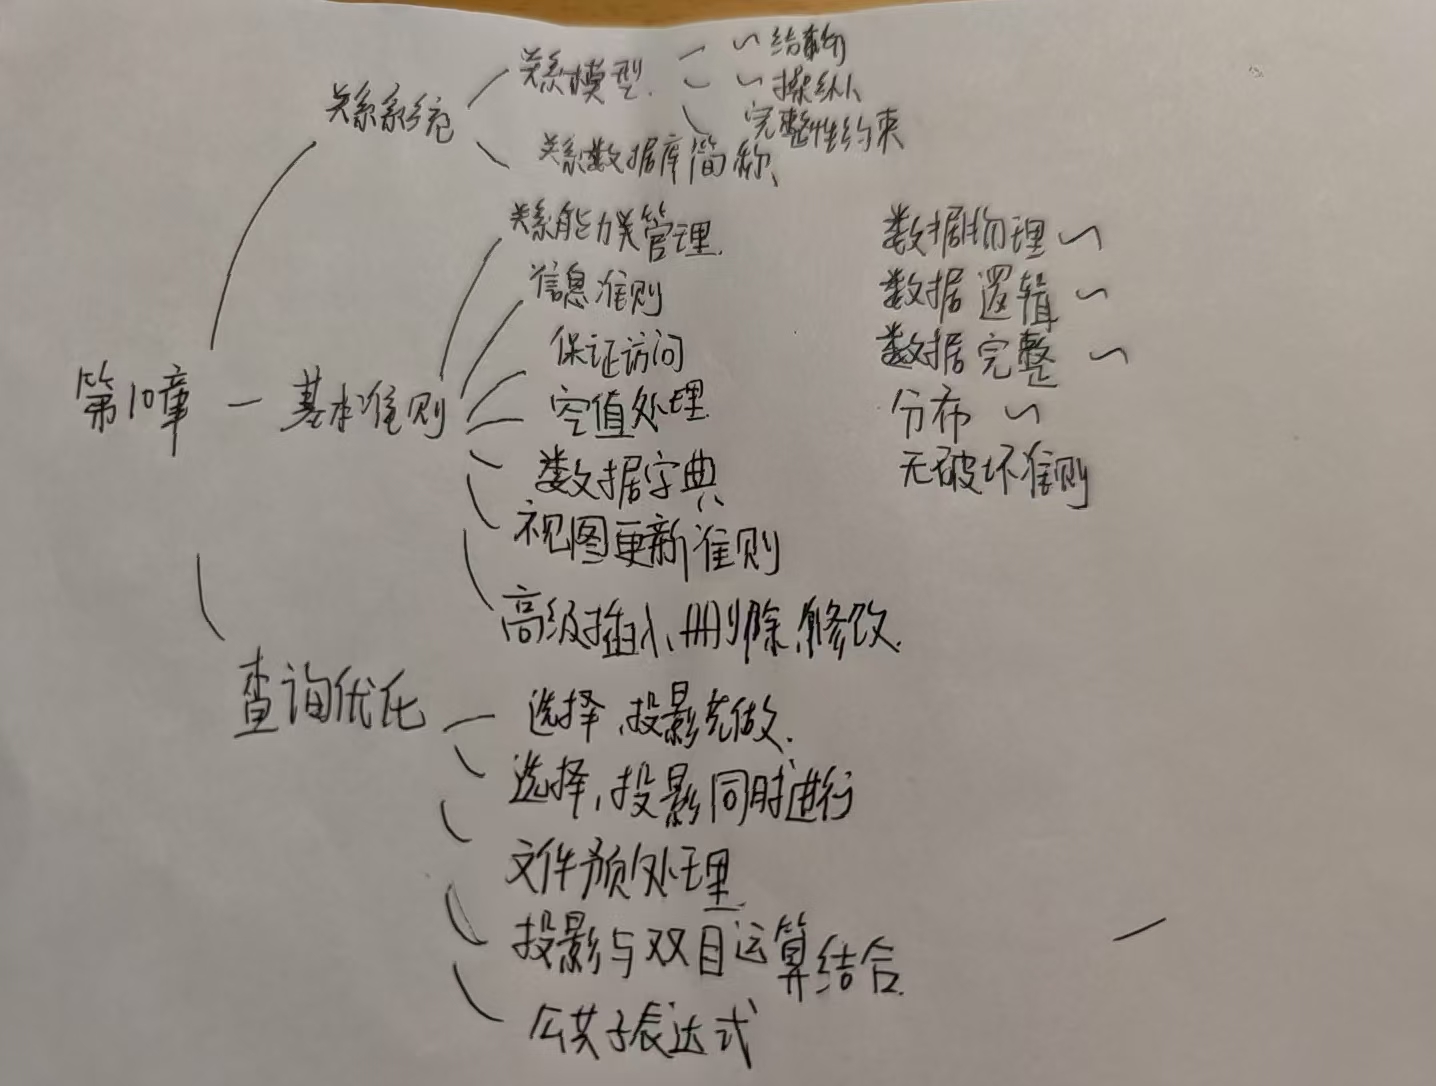 第10章
关系系统
关系模型
~结构
~操纵
完整性约束
关系数据库简称
基本准则
关系能力关管理
信息准则
保证访问
空值处理
数据字典
视图更新准则
高级插入、删除、修改.
数据物理~
数据逻辑~
数据完整~
分布~
无破坏准则
查询优化
选择、投影先做.
选择、投影同时进行
文件预处理
投影与双目运算结合.
公共子表达式